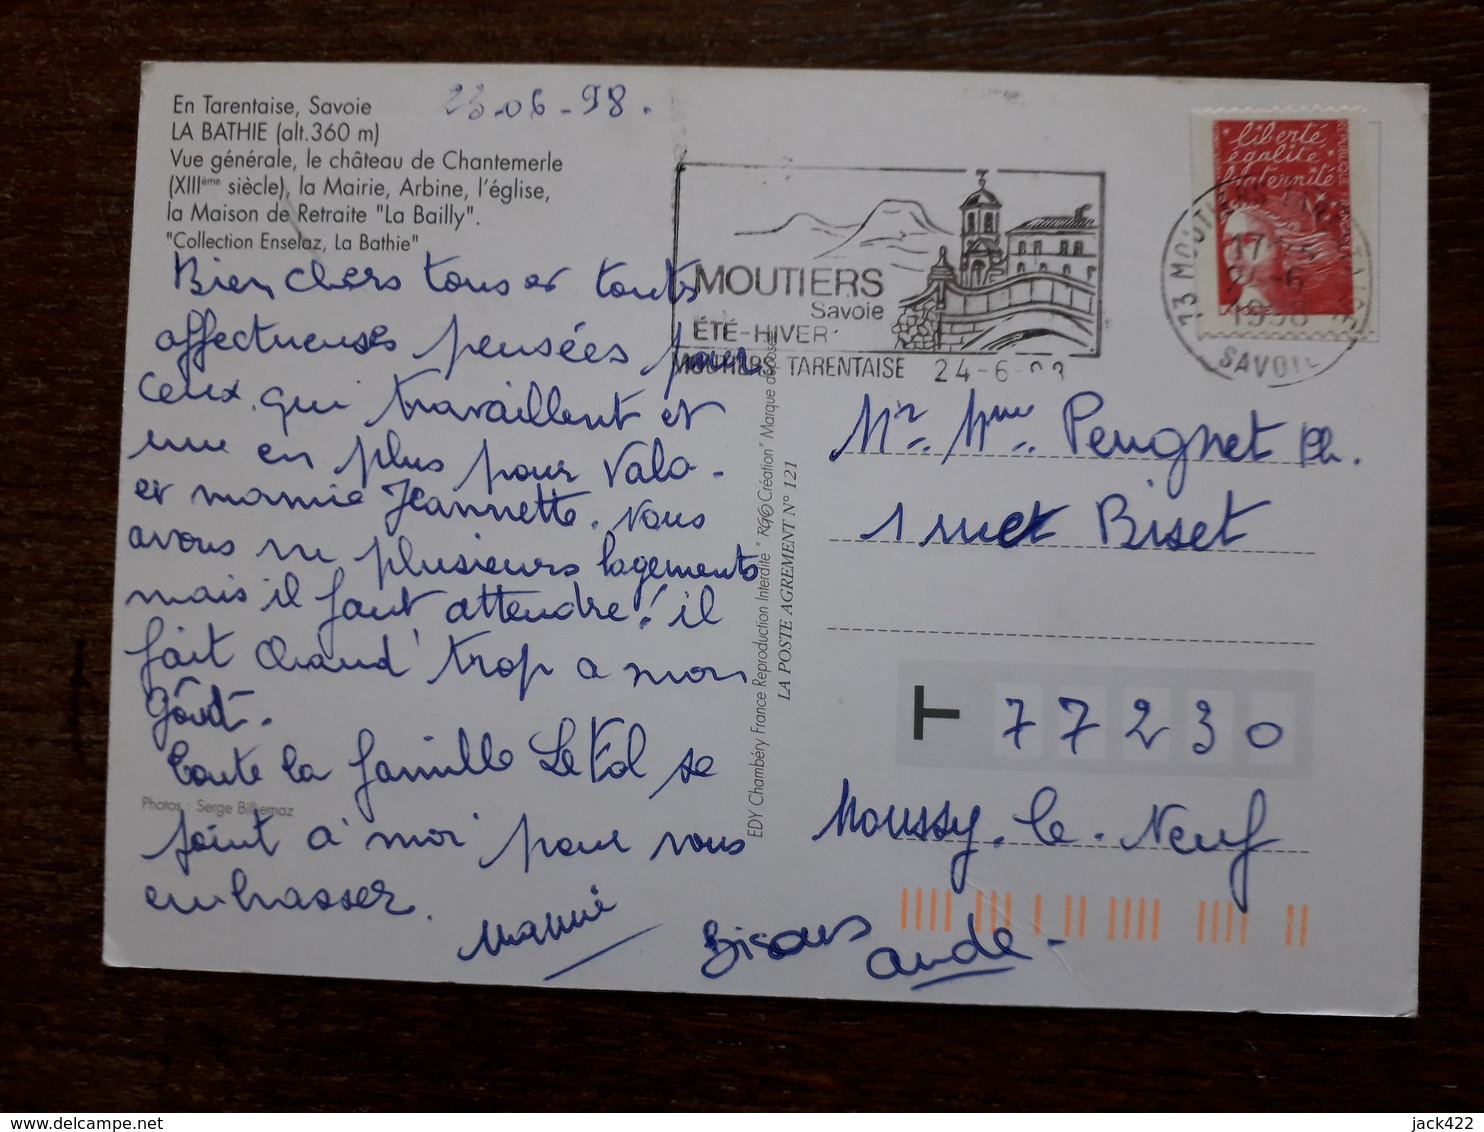 En Tarentaise, Savoie
LA BATHIE (alt.360 m)
Vue générale, le château de Chantemerle
(XIIIème siècle), la Mairie, Arbine, l'église,
la Maison de Retraite "La Bailly".
"Collection Enselaz, La Bathie"
23-06-98.
Bien chers tous et toutes
affectueuses pensées pour
ceux qui travaillent et
une en plus pour Valo-
et mamie Jeannette. Nous
avons vu plusieurs logements
mais il faut attendre! il
fait chaud trop a mon
Goût.
Toute la famille Le Fol se
joint à moi pour vous
embrasser.
Mamie
Bisous
aude
Photos : Serge Bilkemaz
EDY Chambéry France Reproduction Interdite " RGO Création" Marque déposée
LA POSTE AGREMENT N° 121
MOUTIERS
Savoie
ÉTÉ-HIVER
MOUTIERS TARENTAISE 24-6-98
liberté
égalité
fraternité
73 MOUTIERS TARENTAISE
17
24-6
1998
SAVOIE
Mr. Mme. Peugnet Ph.
1 rue Biset
T 77230
Moussy-le-Neuf
jack422